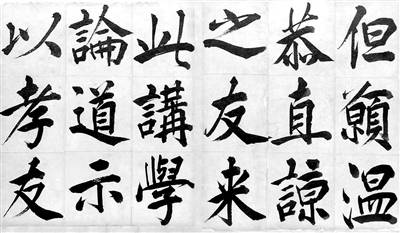 但願温
恭直諒
之友来
此講學
論道示
以孝友